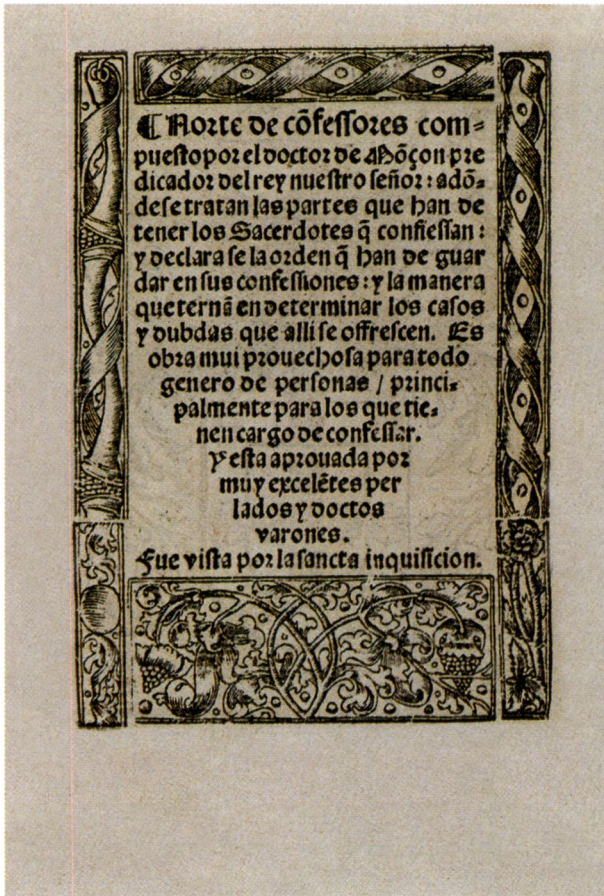 ¶ Norte de cõfessores com=
puesto por el doctor de Mõçon pre
dicador del rey nuestro señor: adõ=
de se tratan las partes que han de
tener los Sacerdotes q̃ confiessan:
y declara se la orden q̃ han de guar
dar en sus confessiones: y la manera
que ternã en determinar los casos
y dubdas que alli se offrescen. Es
obra mui prouechosa para todo
genero de personas / princi=
palmente para los que tie=
nen cargo de confessar.
Y esta aprouada por
muy excelẽtes per
lados y doctos
varones.
Fue vista por la sancta inquisicion.